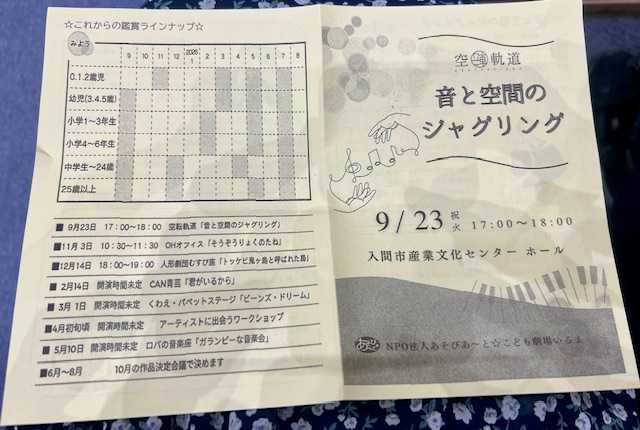 ☆これからの鑑賞ラインナップ☆
みよう
2026
9 10 11 12 1 2 3 4 5 6 7 8
0.1.2歳児
幼児(3.4.5歳)
小学1〜3年生
小学4〜6年生
中学生〜24歳
25歳以上
■ 9月23日 17：00〜18：00 空転軌道「音と空間のジャグリング」
■11月 3日 10：30〜11：30 OHオフィス「そうぞうりょくのたね」
■12月14日 18：00〜19：00 人形劇団むすび座「トッケビ鬼ヶ島と呼ばれた島」
■ 2月14日 開演時間未定 CAN青芸「君がいるから」
■ 3月 1日 開演時間未定 くわえ・パペットステージ「ビーンズ・ドリーム」
■4月初旬頃 開演時間未定 アーティストに出会うワークショップ
■ 5月10日 開演時間未定 ロバの音楽座「ガランピーな音楽会」
■6月〜8月 10月の作品決定会議で決めます
空転軌道
音と空間の
ジャグリング
9/23 祝火 17:00〜18:00
入間市産業文化センター ホール
NPO法人あそびあ〜と☆こども劇場いるま